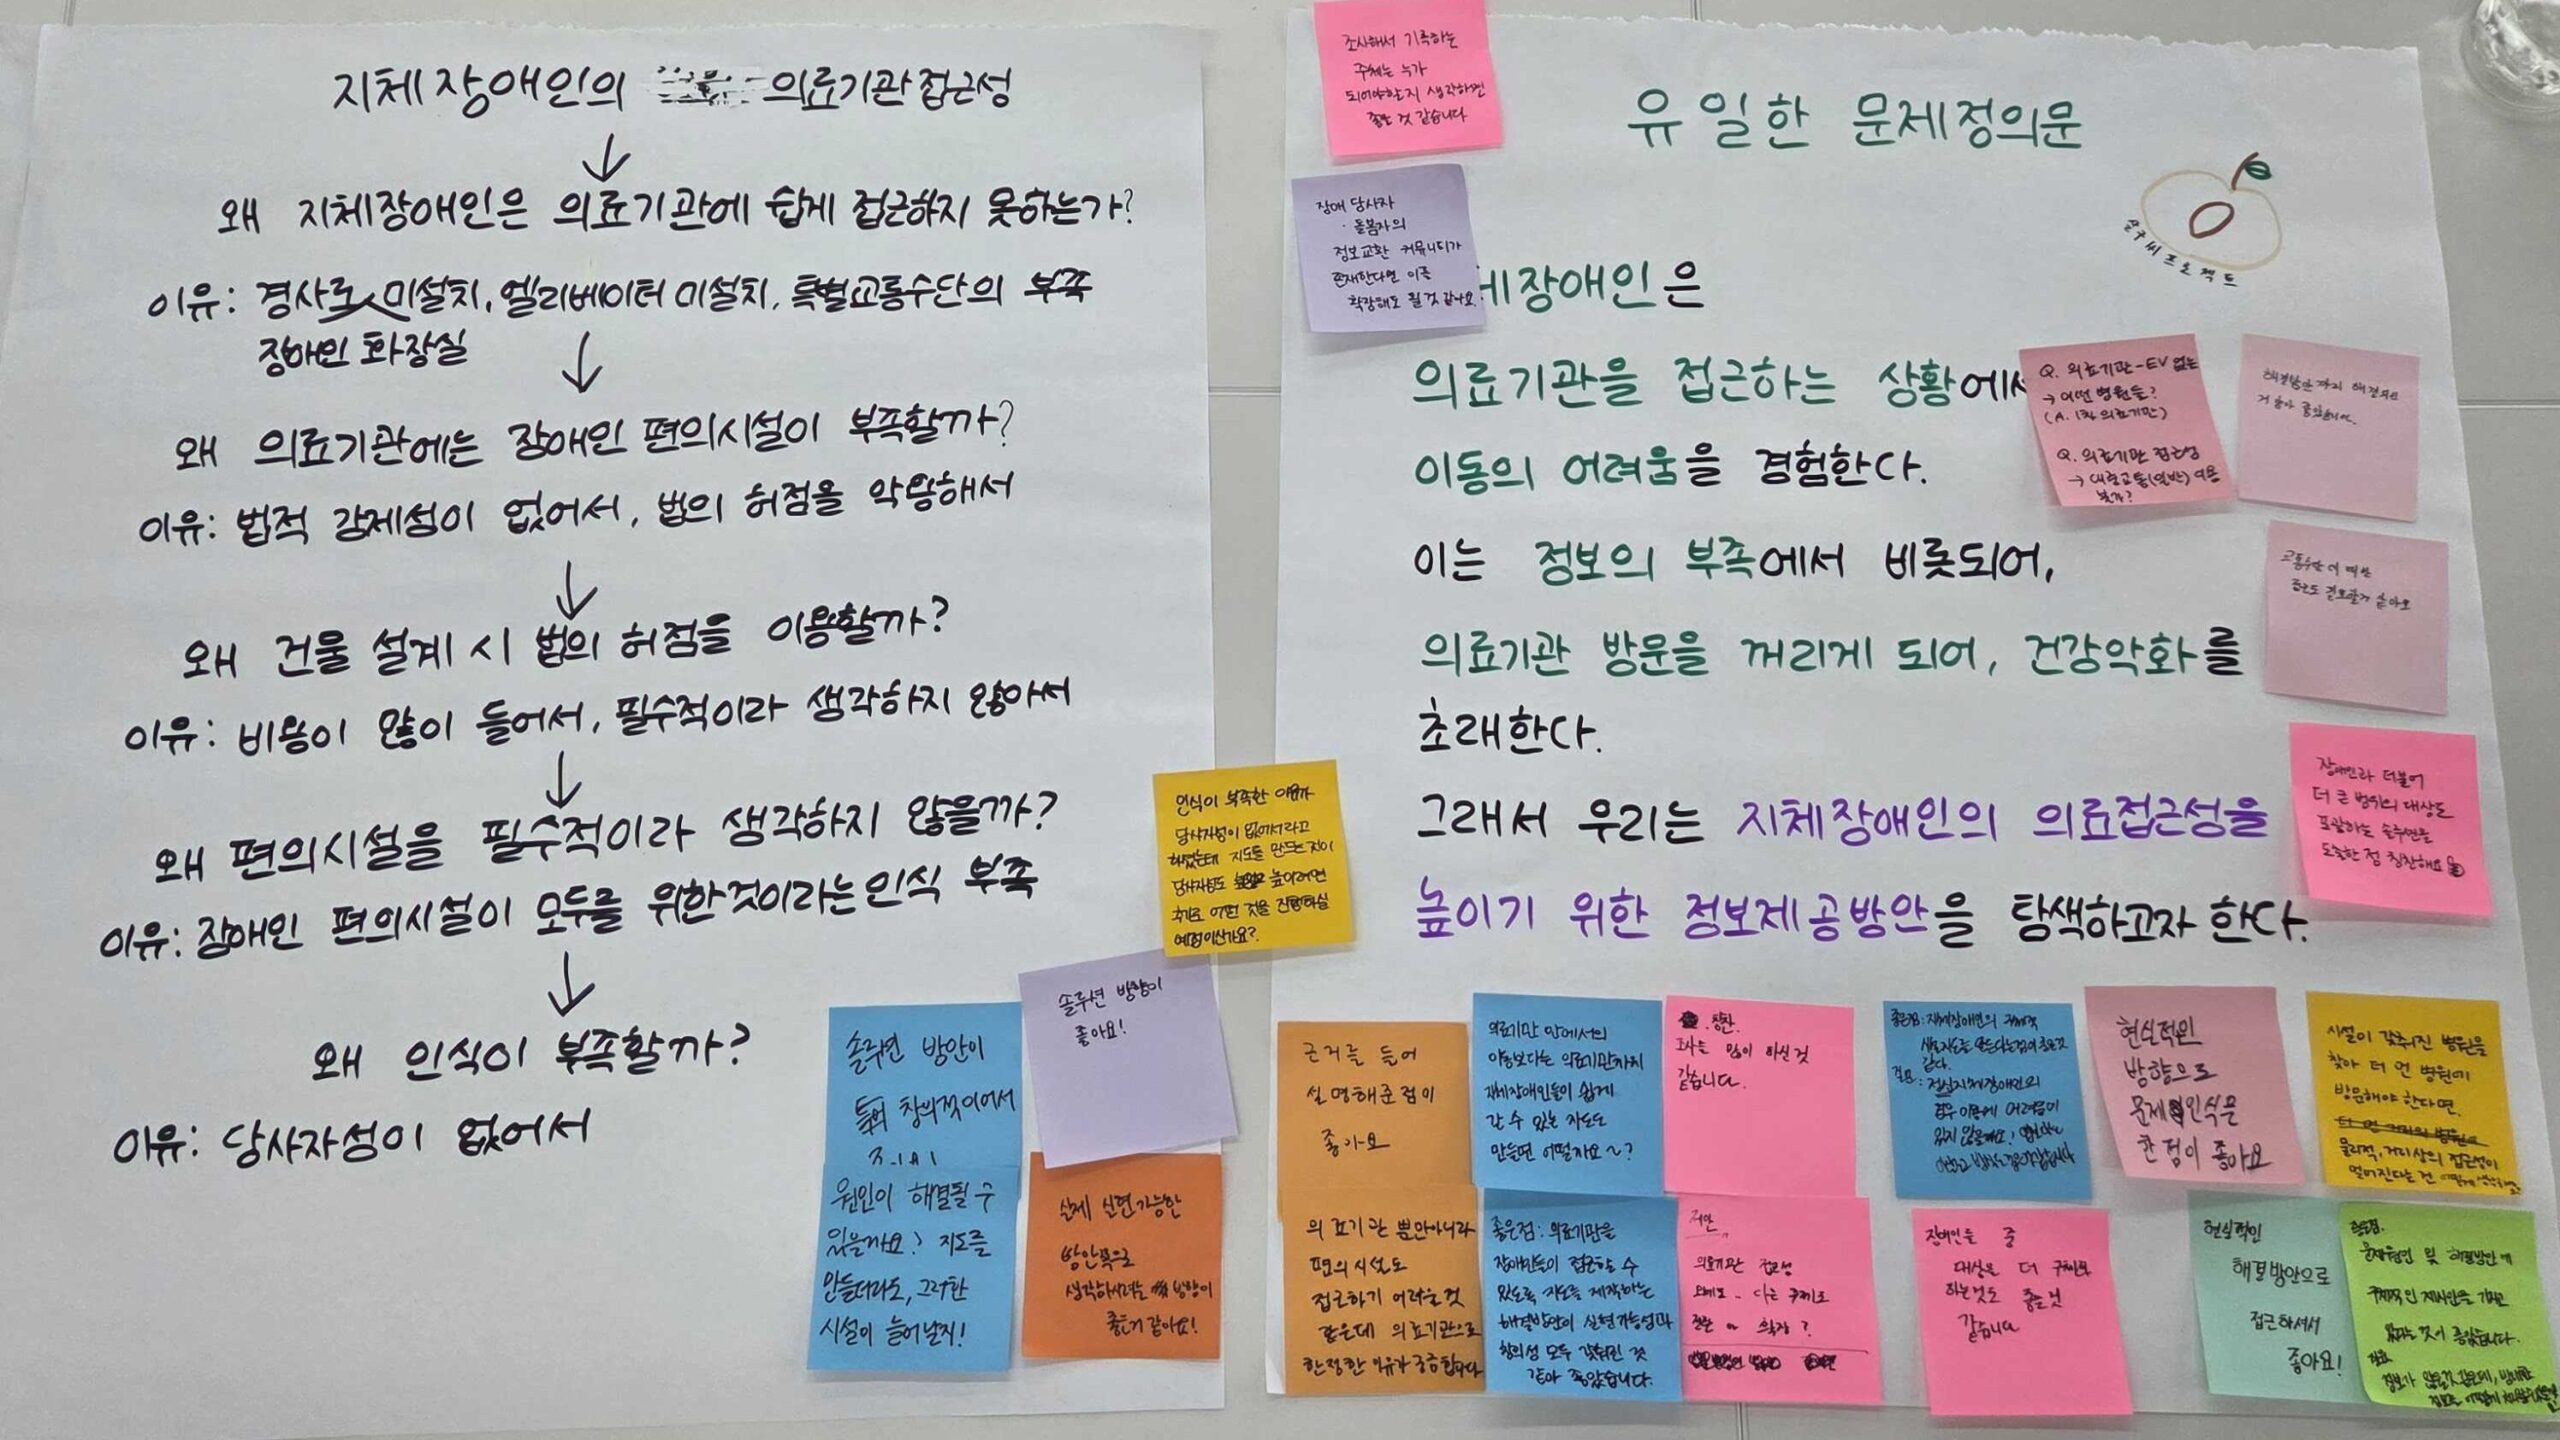 지체장애인의 의료기관접근성
왜 지체장애인은 의료기관에 쉽게 접근하지 못하는가?
이유: 경사로 미설치, 엘리베이터 미설치, 특별교통수단의 부족
장애인 화장실
왜 의료기관에는 장애인 편의시설이 부족할까?
이유: 법적 강제성이 없어서, 법의 허점을 악용해서
왜 건물 설계 시 법의 허점을 이용할까?
이유: 비용이 많이 들어서, 필수적이라 생각하지 않아서
왜 편의시설을 필수적이라 생각하지 않을까?
이유: 장애인 편의시설이 모두를 위한것이라는 인식 부족
왜 인식이 부족할까?
이유: 당사자성이 없어서
인식이 부족한 이유가
당사자성이 없어서라고
하셨는데 지도를 만드는 것이
당사자성도 높이려면
추가로 어떤 것을 진행하실
예정이신가요?
솔루션 방향이
좋아요!
솔루션 방안이
창의적이어서
원인이 해결될 수
있을까요? 지도를
만들더라도, 그러한
시설이 늘어날지!
실제 실현가능한
방안쪽으로
생각하시려는 방향이
좋은거 같아요!
조사해서 기록하는
주체는 누가
되어야할지 생각하면
좋은 것 같습니다
장애 당사자
· 돌봄자의
정보교환 커뮤니티가
존재한다면 이를
확장해도 될 것 같아요.
유일한 문제정의문
살구씨프로젝트
체장애인은
의료기관을 접근하는 상황에서
이동의 어려움을 경험한다.
이는 정보의 부족에서 비롯되어,
의료기관 방문을 꺼리게 되어, 건강악화를
초래한다.
그래서 우리는 지체장애인의 의료접근성을
높이기 위한 정보제공방안을 탐색하고자 한다.
Q. 의료기관-EV 없는
→ 어떤 병원들?
(A. 1차 의료기관)
Q. 의료기관 접근성
→ 대중교통(일반) 이용
불가?
해결방안까지
교통수단에 대한
접근도 필요할거 같아요
장애인과 더불어
더 큰 범위의 대상도
포괄하는 솔루션을
도출한 점 칭찬해요
근거를 들어
설명해준점이
좋아요
의료기관 안에서의
이동보다는 의료기관까지
지체장애인들이 쉽게
갈 수 있는 지도도
만들면 어떨까요~?
칭찬
조사를 많이 하신 것
같습니다.
좋은점: 지체장애인의
현실적인
방향으로
문제인식을
한 점이 좋아요
시설이 갖춰진 병원을
찾아 더 먼 병원에
방문해야 한다면.
물리적, 거리상의 접근성이
멀어진다는 건
의료기관 뿐만아니라
편의시설도
접근하기 어려울것
같은데 의료기관으로
한정한 이유가 궁금합니다
좋은점: 의료기관을
장애인들이 접근할 수
있도록 지도를 제작하는
해결방안이 실현가능성과
창의성 모두 갖춰진 것
같아 좋았습니다.
제안
의료기관 접근성
장애인들 중
대상을 더 구체화
하는것도 좋을것
같습니다
현실적인
해결방안으로
접근하셔서
좋아요!
좋은점.
문제원인 및 해결방안에
구체적인 제시안을 가지고
있다는 것이 좋았습니다.